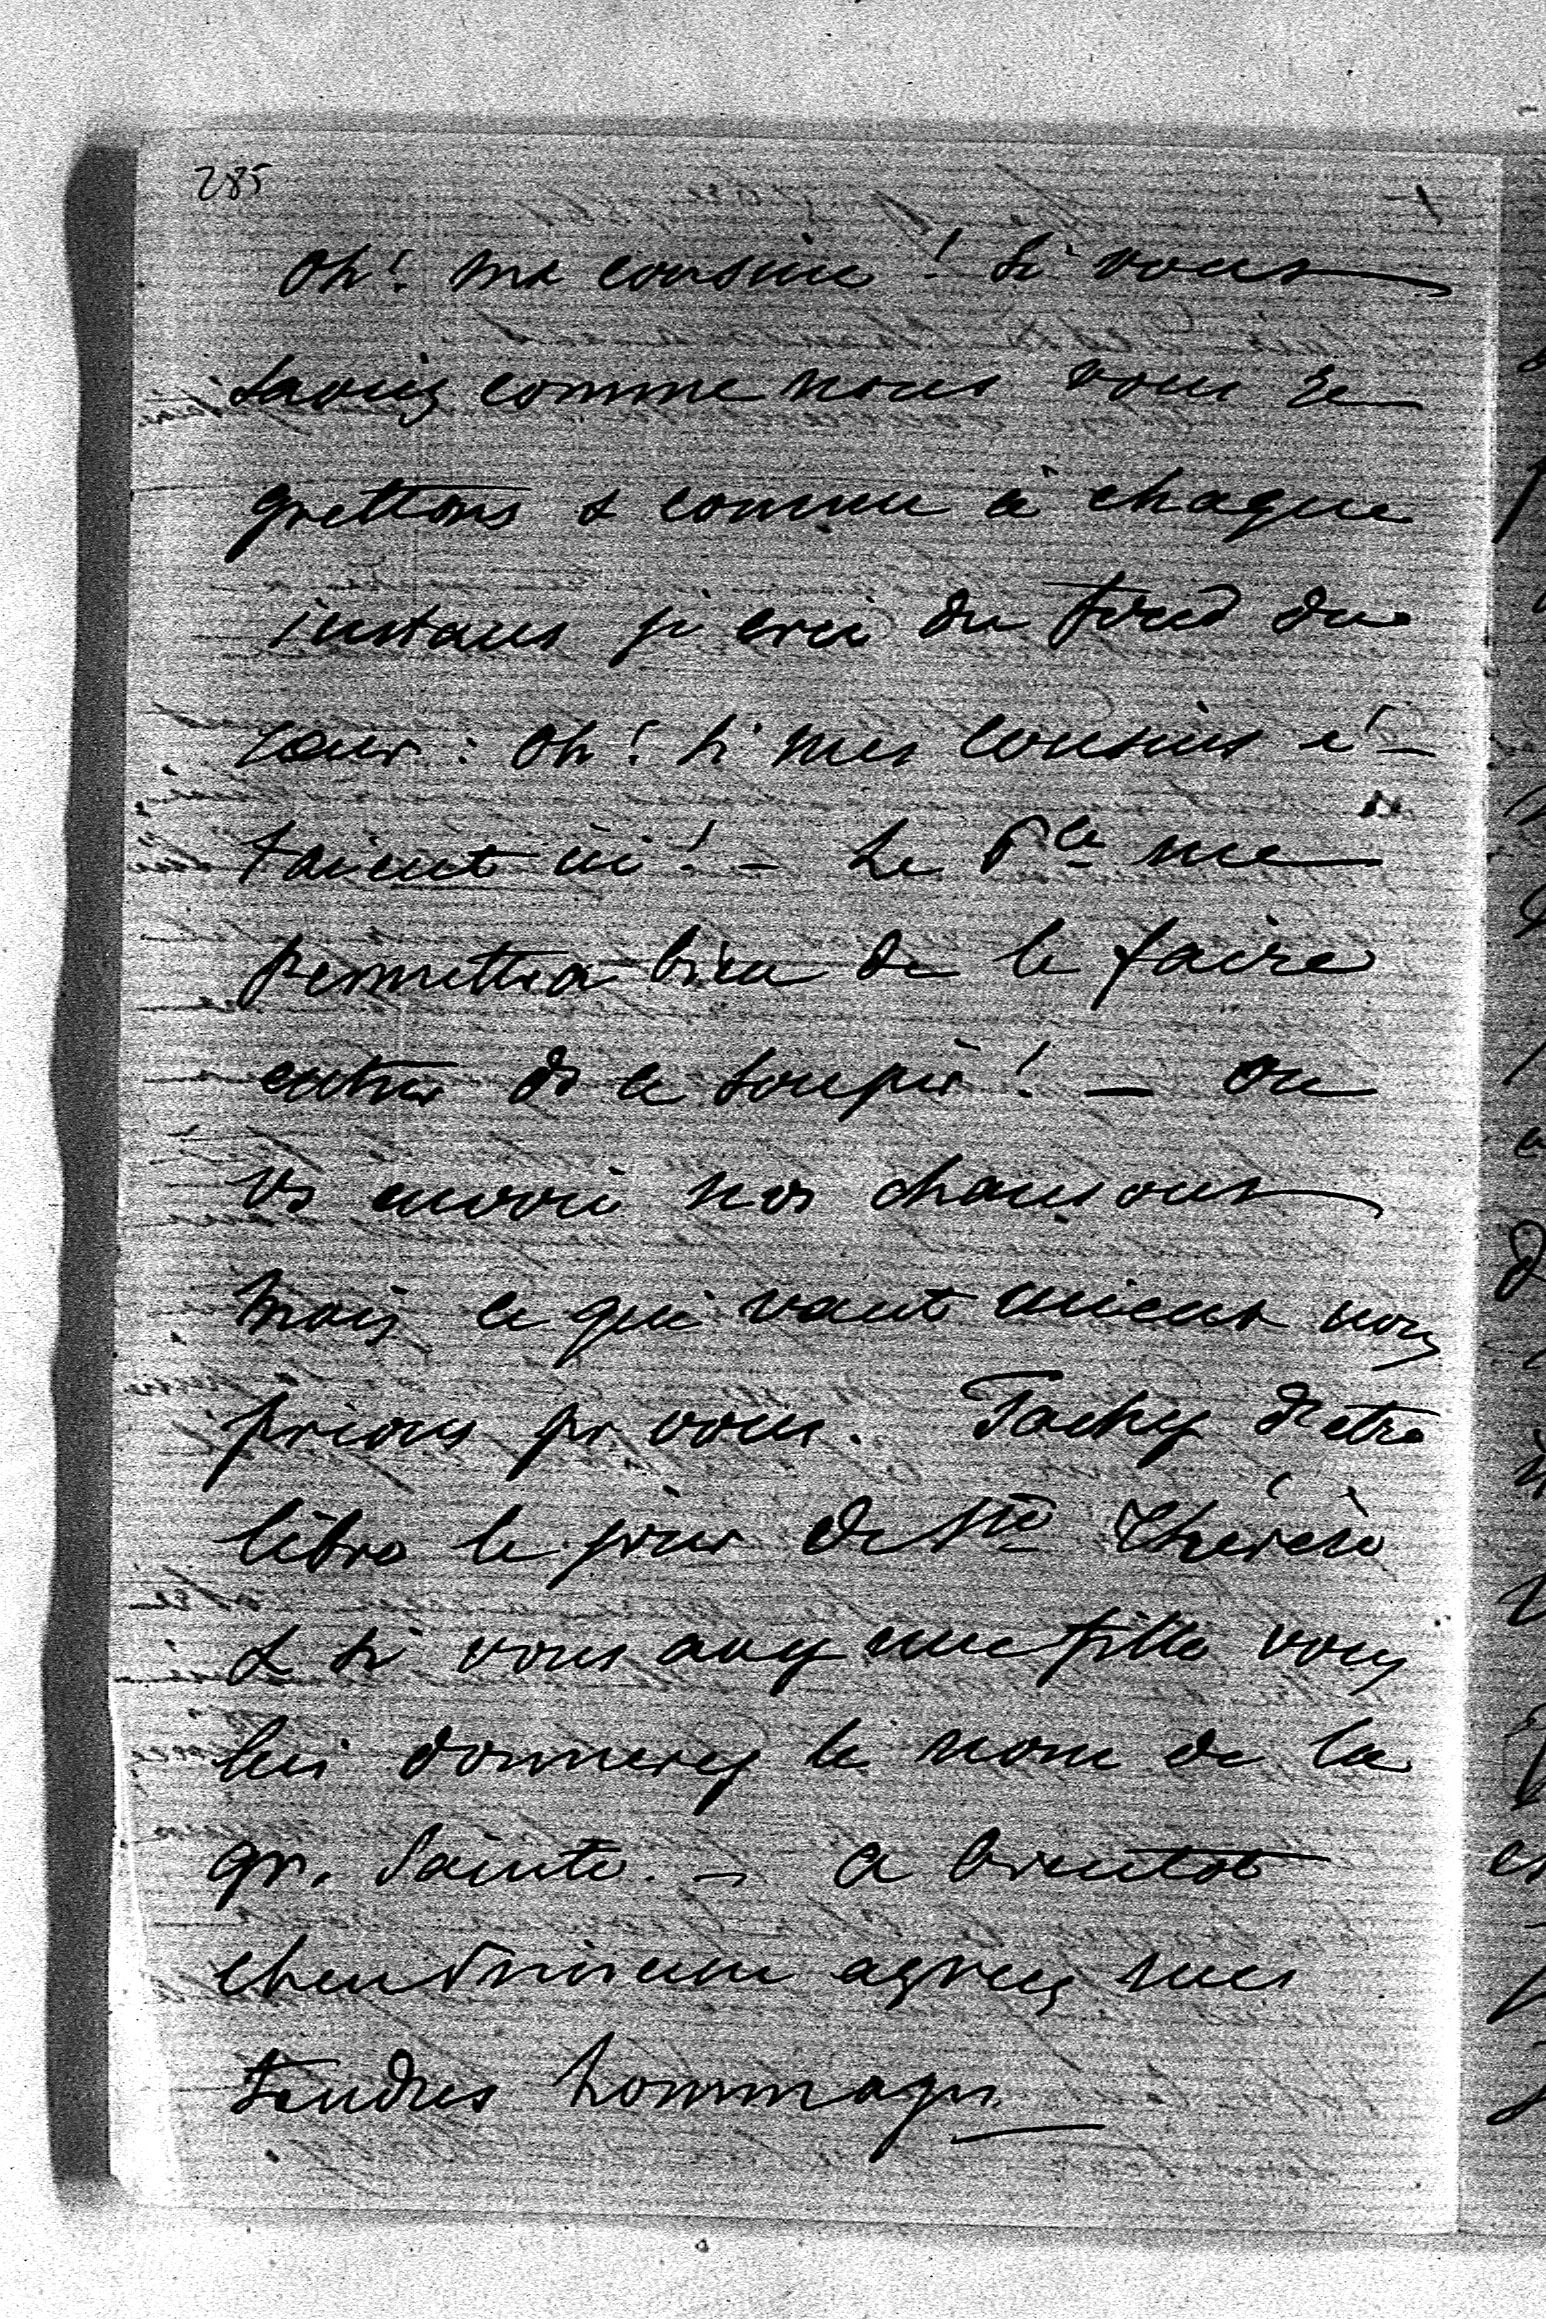 285
Oh! ma cousine! Si vous
saviez comme nous vous re
grettons & comme à chaque
instans je crie du fond du
coeur : Oh! si mes cousins é-
taient ici! - Le Pce me
permettra bien de le faire
entrer ds ce soupir! - On
vs envoie nos chansons
mais ce qui vaut mieux nous
prions pr vous. Tachez d'etre
libre le jour de Ste Thérèse
& si vous avez une fille vous
lui donnerez le nom de la
gr. Sainte. - A bientot
chere Princesse agreez mes
tendres hommages